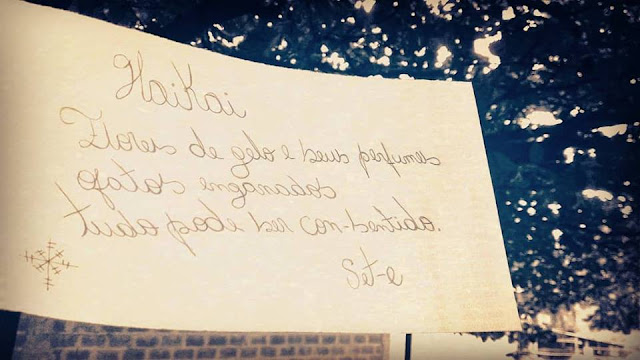 HaiKai
Flores de gelo e seus perfumes
gatos enganados
tudo pode ser con-sentido.
Set-e